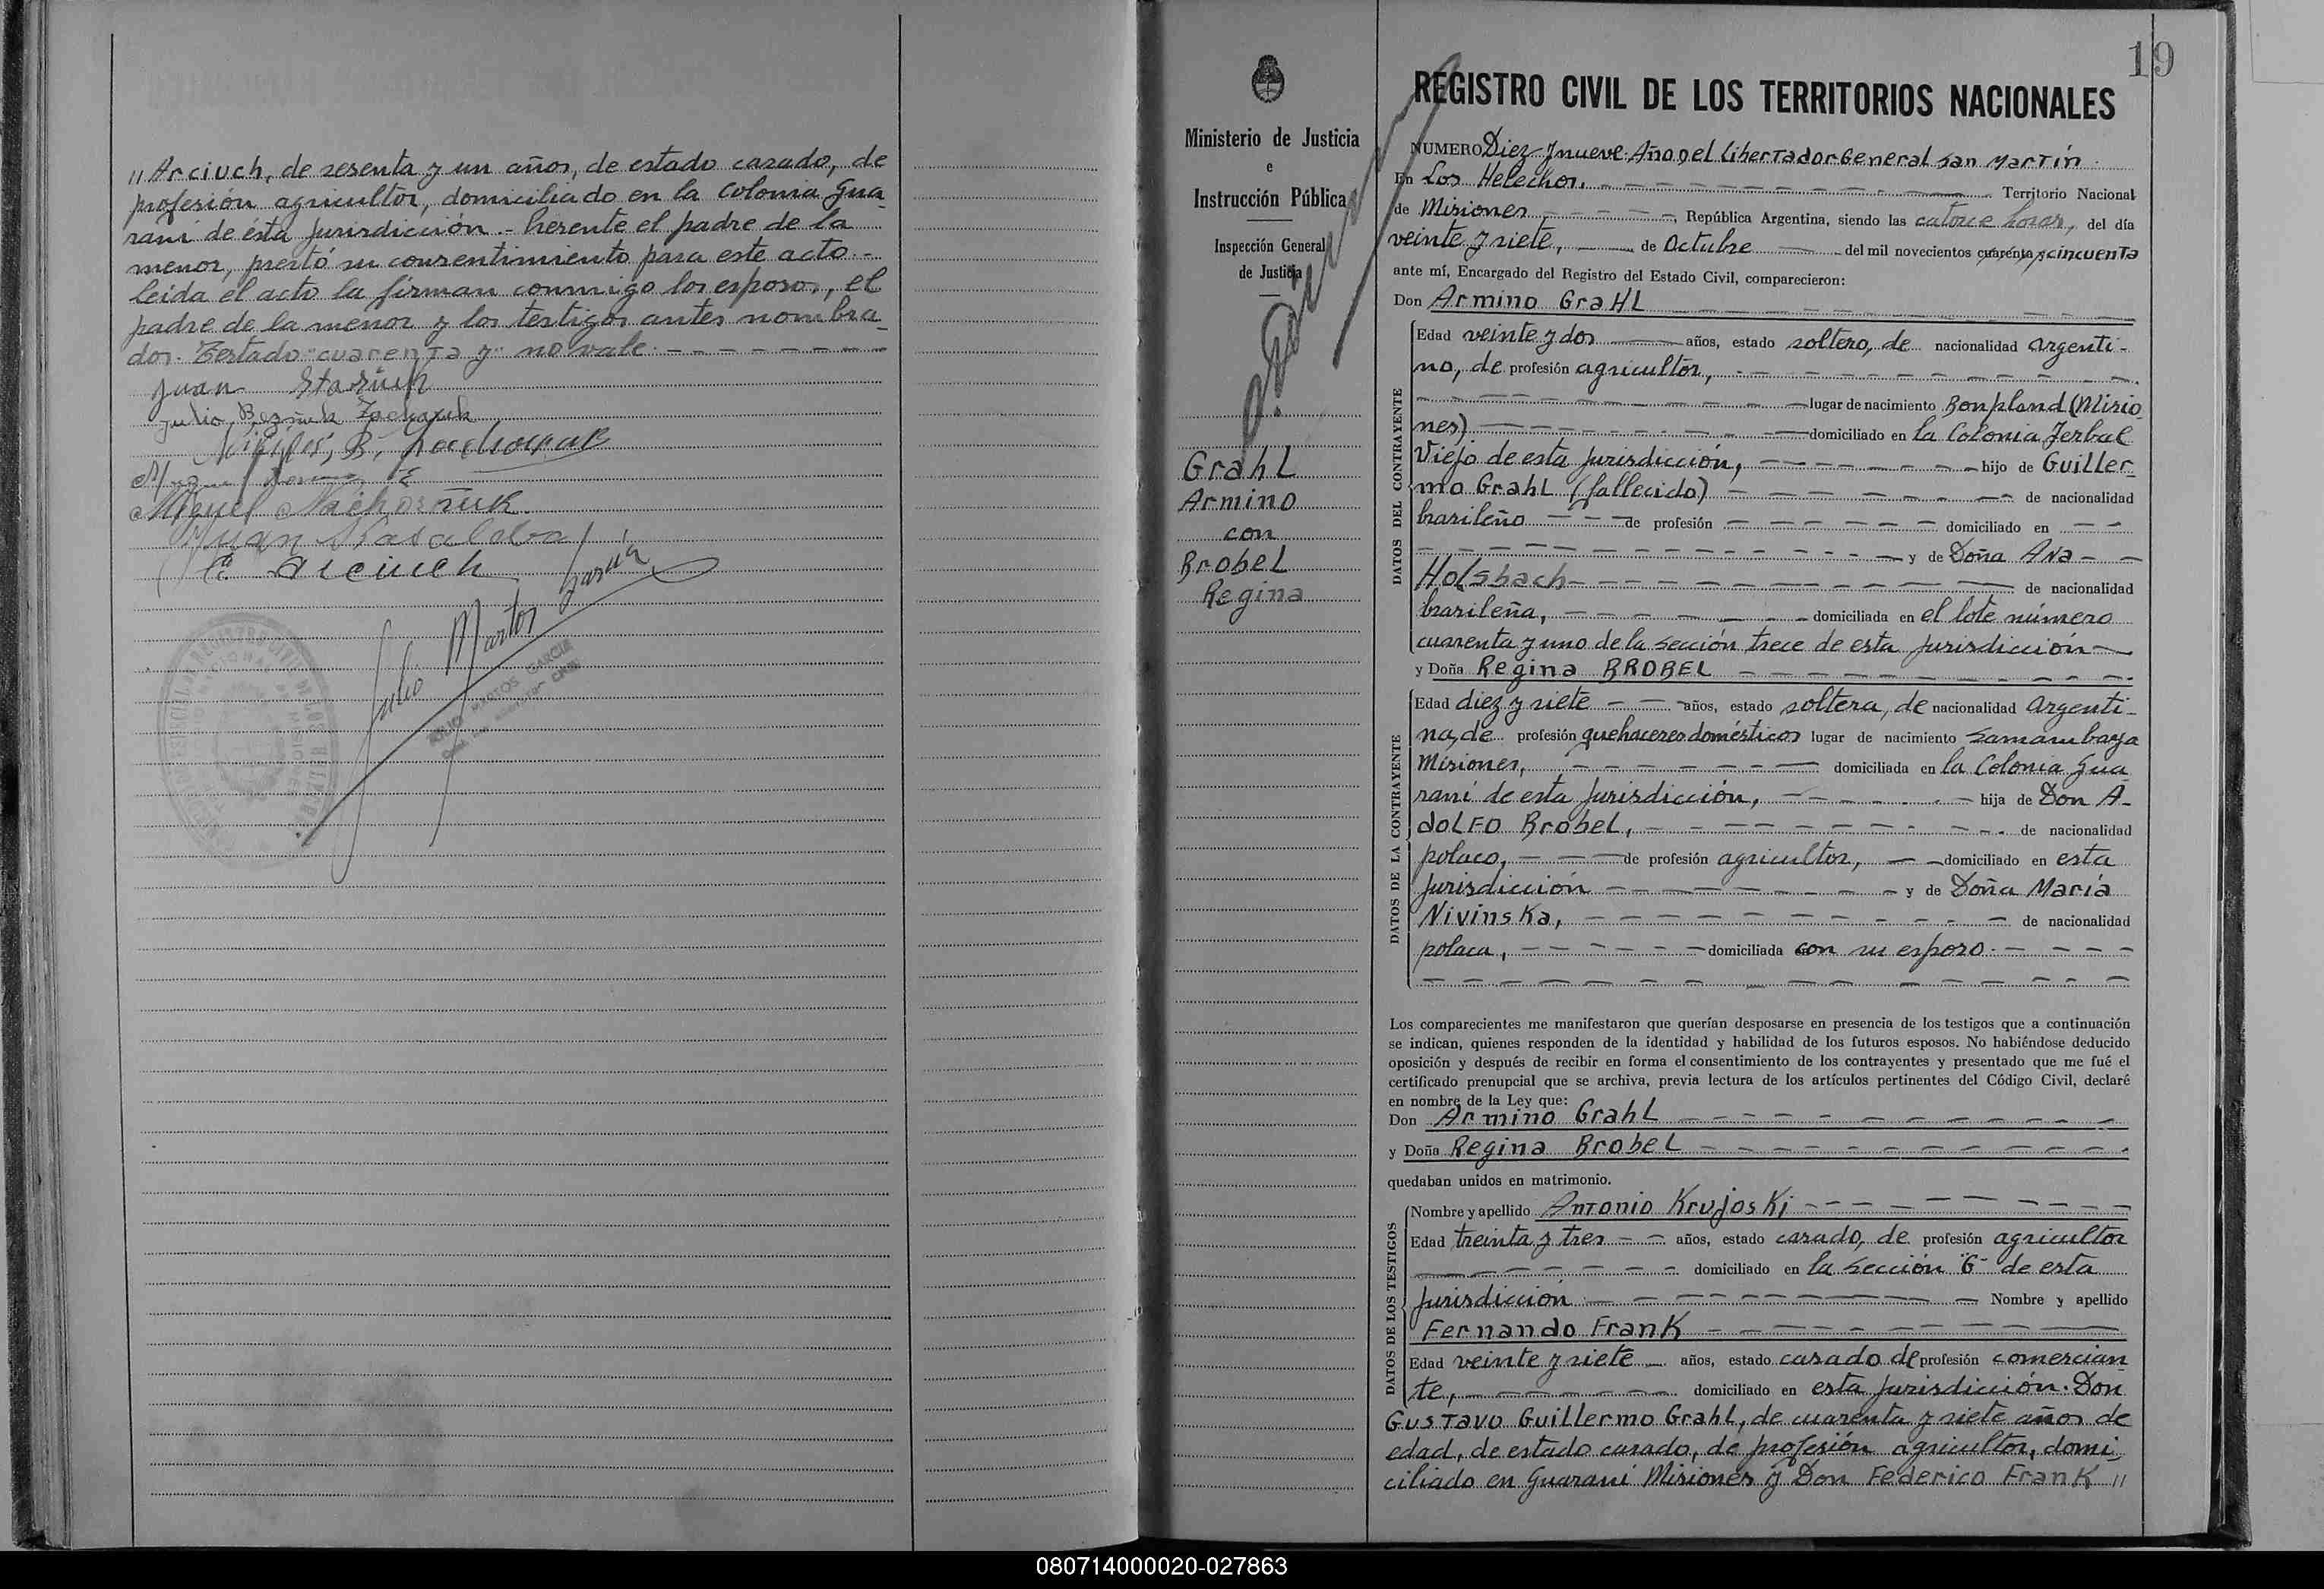 " Arciuch, de sesenta y un años, de estado casado, de
profesión agricultor, domiciliado en la Colonia Gua_
rani de ésta Jurisdicción.- Presente el padre de la
menor, prestó su consentimiento para este acto.-
Leida el acto la firman conmigo los esposos, el
padre de la menor y los testigos antes nombra_
dos. Testado "cuarenta y" no vale.
Juan
Julio
Miguel
Juan
E. Arciuch
Julio Martos García
JULIO MARTOS GARCIA
19
Ministerio de Justicia
e
Instrucción Pública
Inspección General
de Justicia
Grahl
Armino
con
Brobel
Regina
REGISTRO CIVIL DE LOS TERRITORIOS NACIONALES
NUMERO Diez y nueve. Año del Libertador General San Martín.
En Los Helechos, Territorio Nacional
de Misiones, República Argentina, siendo las catorce horas, del día
veinte y siete, de Octubre del mil novecientos cuarenta y cincuenta
ante mí, Encargado del Registro del Estado Civil, comparecieron:
Don Armino Grahl
DATOS DEL CONTRAYENTE
Edad veinte y dos años, estado soltero, de nacionalidad argenti-
no, de profesión agricultor,
lugar de nacimiento Bonpland (Misio
nes) domiciliado en la Colonia Yerbal
Viejo de esta Jurisdicción, hijo de Guiller
mo Grahl (fallecido) de nacionalidad
brasileño de profesión domiciliado en
y de Doña Ana
Holsbach de nacionalidad
brasileña, domiciliada en el lote número
cuarenta y uno de la Sección trece de esta Jurisdicción
y Doña Regina BROBEL
DATOS DE LA CONTRAYENTE
Edad diez y siete años, estado soltera, de nacionalidad argenti-
na, de profesión quehaceres domésticos lugar de nacimiento Samambaya
Misiones, domiciliada en la Colonia Gua
rani de esta Jurisdicción, hija de Don A-
dolfo Brobel, de nacionalidad
polaco, de profesión agricultor, domiciliado en esta
Jurisdicción y de Doña María
Nivinska, de nacionalidad
polaca, domiciliada con su esposo.
Los comparecientes me manifestaron que querían desposarse en presencia de los testigos que a continuación
se indican, quienes responden de la identidad y habilidad de los futuros esposos. No habiéndose deducido
oposición y después de recibir en forma el consentimiento de los contrayentes y presentado que me fué el
certificado prenupcial que se archiva, previa lectura de los artículos pertinentes del Código Civil, declaré
en nombre de la Ley que:
Don Armino Grahl
y Doña Regina Brobel
quedaban unidos en matrimonio.
DATOS DE LOS TESTIGOS
Nombre y apellido Antonio Krujoski
Edad treinta y tres años, estado casado, de profesión agricultor
domiciliado en la Sección "G" de esta
Jurisdicción Nombre y apellido
Fernando Frank
Edad veinte y siete años, estado casado de profesión comercian_
te, domiciliado en esta Jurisdicción. Don
Gustavo Guillermo Grahl, de cuarenta y siete años de
edad, de estado casado, de profesión agricultor, domi_
ciliado en Guarani Misiones y Don Federico Frank "
080714000020-027863